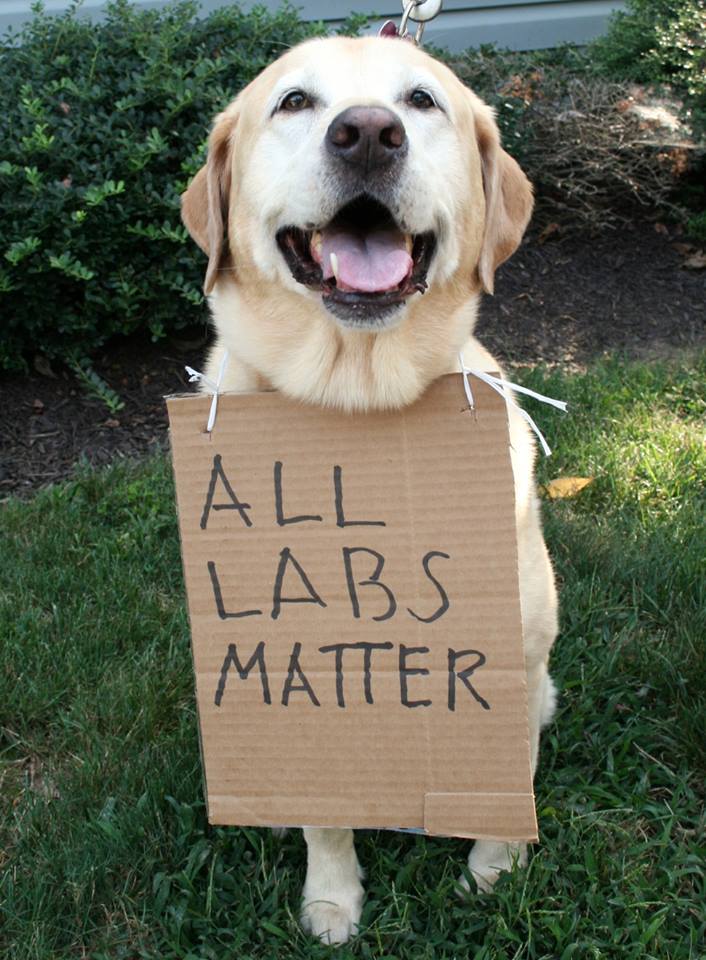 ALL
LABS
MATTER